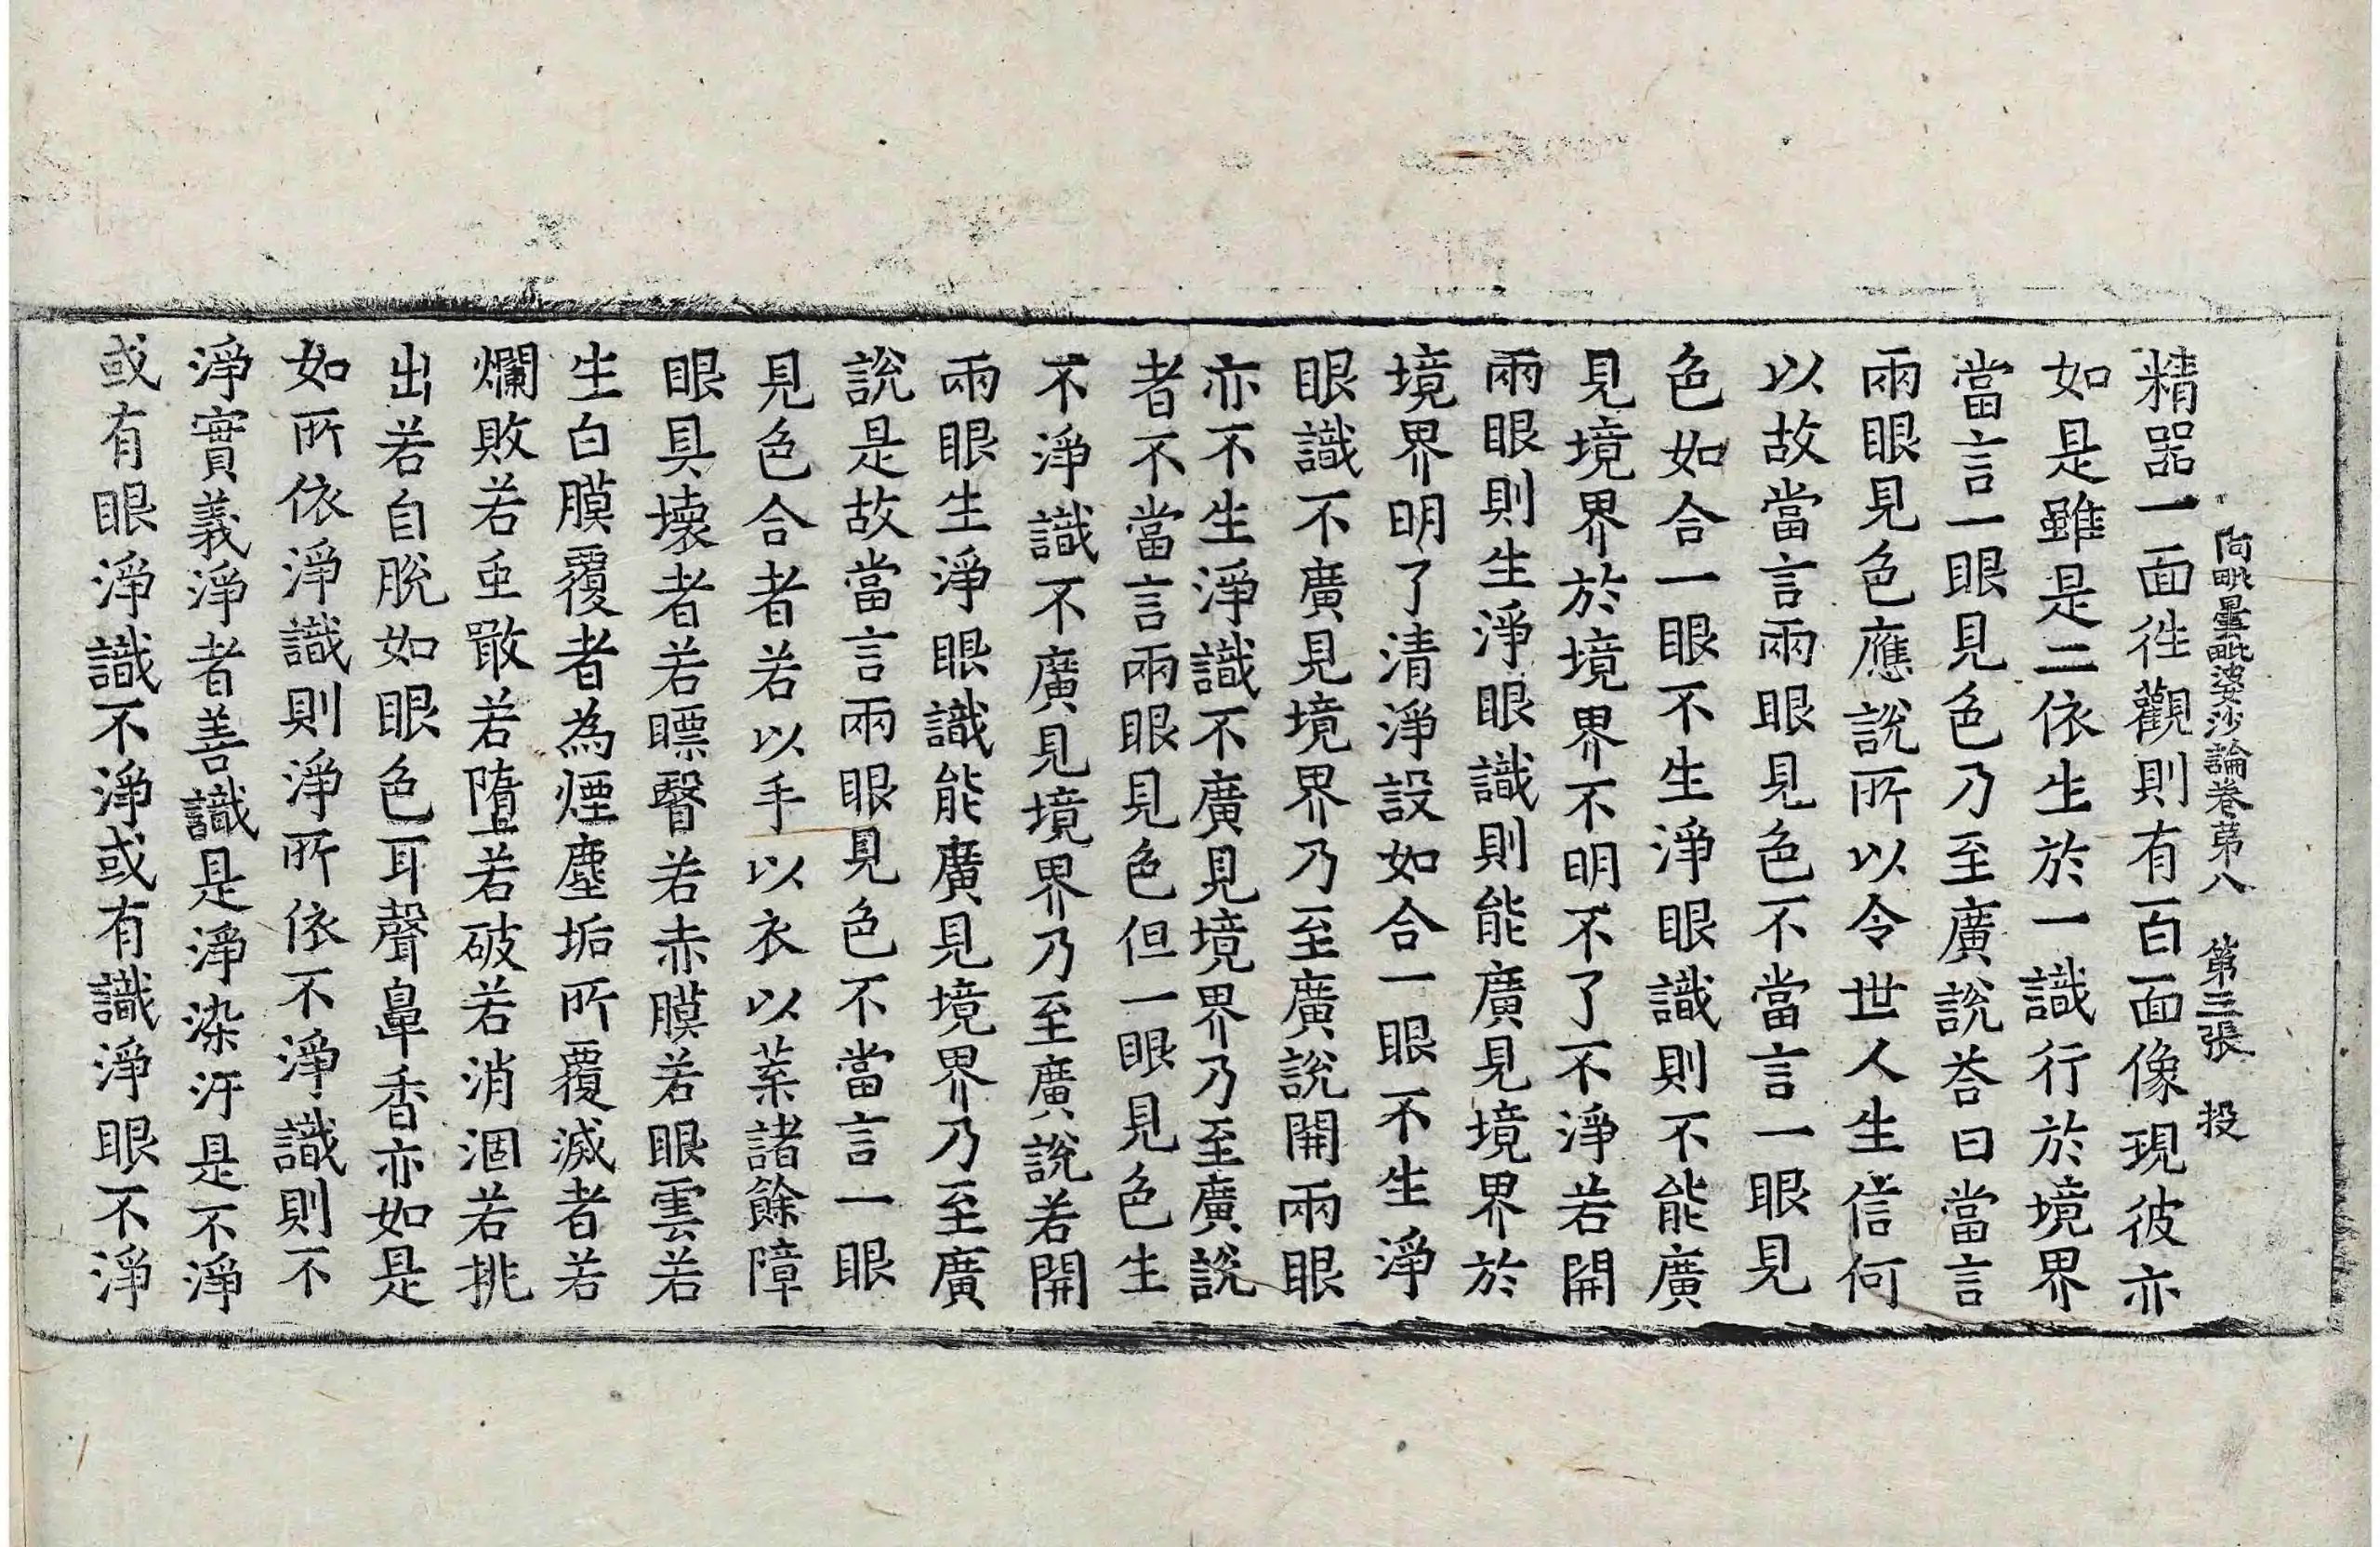 阿毗曇毗婆沙論卷第八　第三張　投
精器一面徃觀則有百面像現彼亦
如是雖是二依生於一識行於境界
當言一眼見色乃至廣說荅曰當言
兩眼見色應說所以令世人生信何
以故當言兩眼見色不當言一眼見
色如合一眼不生淨眼識則不能廣
見境界於境界不明不了不淨若開
兩眼則生淨眼識則能廣見境界於
境界明了清淨設如合一眼不生淨
眼識不廣見境界乃至廣說開兩眼
亦不生淨識不廣見境界乃至廣說
者不當言兩眼見色但一眼見色生
不淨識不廣見境界乃至廣說若開
兩眼生淨眼識能廣見境界乃至廣
說是故當言兩眼見色不當言一眼
見色合者若以手以衣以葉諸餘障
眼具壞者若瞟瞖若赤膜若眼雲若
生白膜覆者為煙塵垢所覆滅者若
爛敗若虫噉若墮若破若消涸若挑
出若自脫如眼色耳聲鼻香亦如是
如所依淨識則淨所依不淨識則不
淨實義淨者善識是淨染汙是不淨
或有眼淨識不淨或有識淨眼不淨